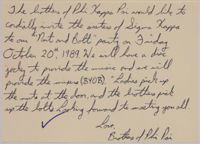 The brothers of Phi Kappa Psi would like to
cordially invite the sisters of Sigma Kappa
to our "Nut and Bolt" party on Friday
October 20th, 1989. We will have a dirt
jockey to provide the music and we will
provide the mixers (BYOB). Ladies pick up
the nuts at the door, and the brothers pick
up the bolts. Looking forward to meeting you all.
Love,
Brothers of Phi Psi